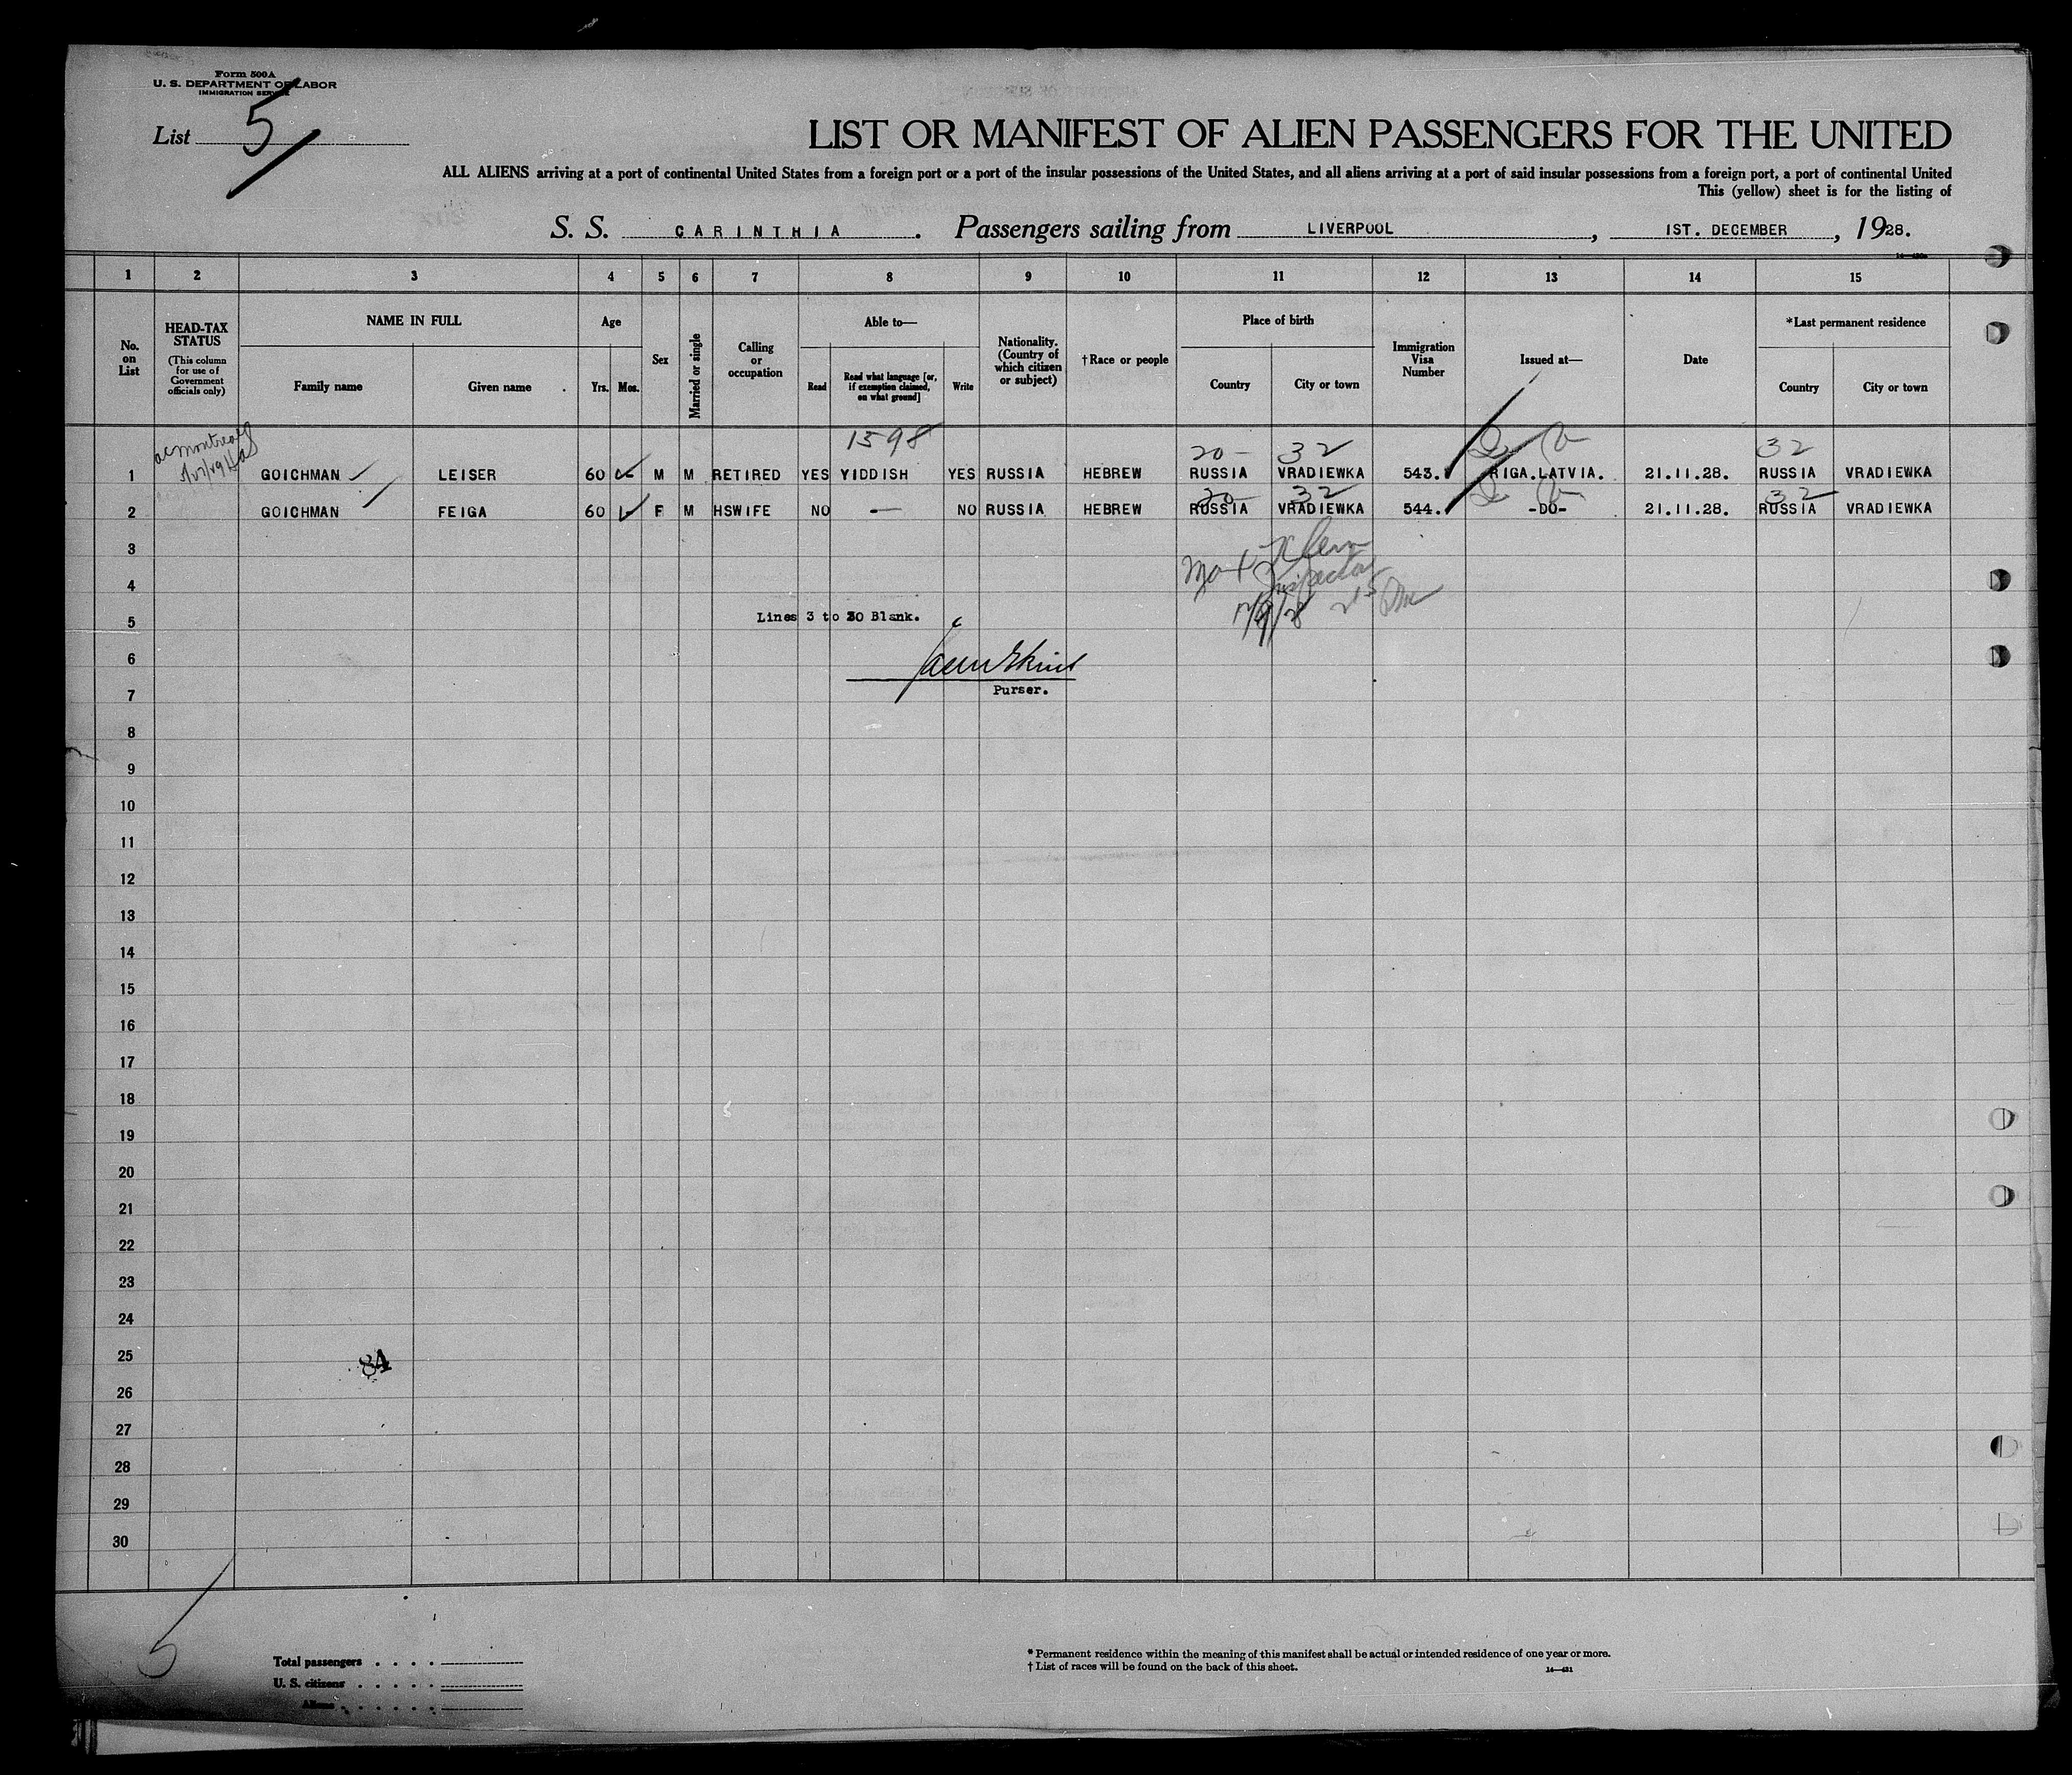 Form 500A
U. S. DEPARTMENT OF LABOR
IMMIGRATION SERVICE
List 5
LIST OR MANIFEST OF ALIEN PASSENGERS FOR THE UNITED
ALL ALIENS arriving at a port of continental United States from a foreign port or a port of the insular possessions of the United States, and all aliens arriving at a port of said insular possessions from a foreign port, a port of continental United
This (yellow) sheet is for the listing of
S. S. CARINTHIA. Passengers sailing from LIVERPOOL, 1ST. DECEMBER, 1928.
1 2 3 4 5 6 7 8 9 10 11 12 13 14 15
No. on List
HEAD-TAX STATUS
(This column for use of Government officials only)
NAME IN FULL
Family name Given name
Age
Yrs. Mos.
Sex
Married or single
Calling or occupation
Able to—
Read
Read what language [or, if exemption claimed, on what ground]
Write
Nationality. (Country of which citizen or subject)
†Race or people
Place of birth
Country City or town
Immigration Visa Number
Issued at—
Date
*Last permanent residence
Country City or town
1598 20- 32 32
1 GOICHMAN LEISER 60 M M RETIRED YES YIDDISH YES RUSSIA HEBREW RUSSIA VRADIEWKA 543. RIGA.LATVIA. 21.11.28. RUSSIA VRADIEWKA
20- 32 32
2 GOICHMAN FEIGA 60 F M HSWIFE NO — NO RUSSIA HEBREW RUSSIA VRADIEWKA 544. -DO- 21.11.28. RUSSIA VRADIEWKA
3
4 Inspector
5 Lines 3 to 30 Blank.
6
7 Purser.
8
9
10
11
12
13
14
15
16
17
18
19
20
21
22
23
24
25 84
26
27
28
29
30
5
Total passengers . . . .
U. S. citizens . . . . .
Aliens . . . . . .
* Permanent residence within the meaning of this manifest shall be actual or intended residence of one year or more.
† List of races will be found on the back of this sheet. 14—431